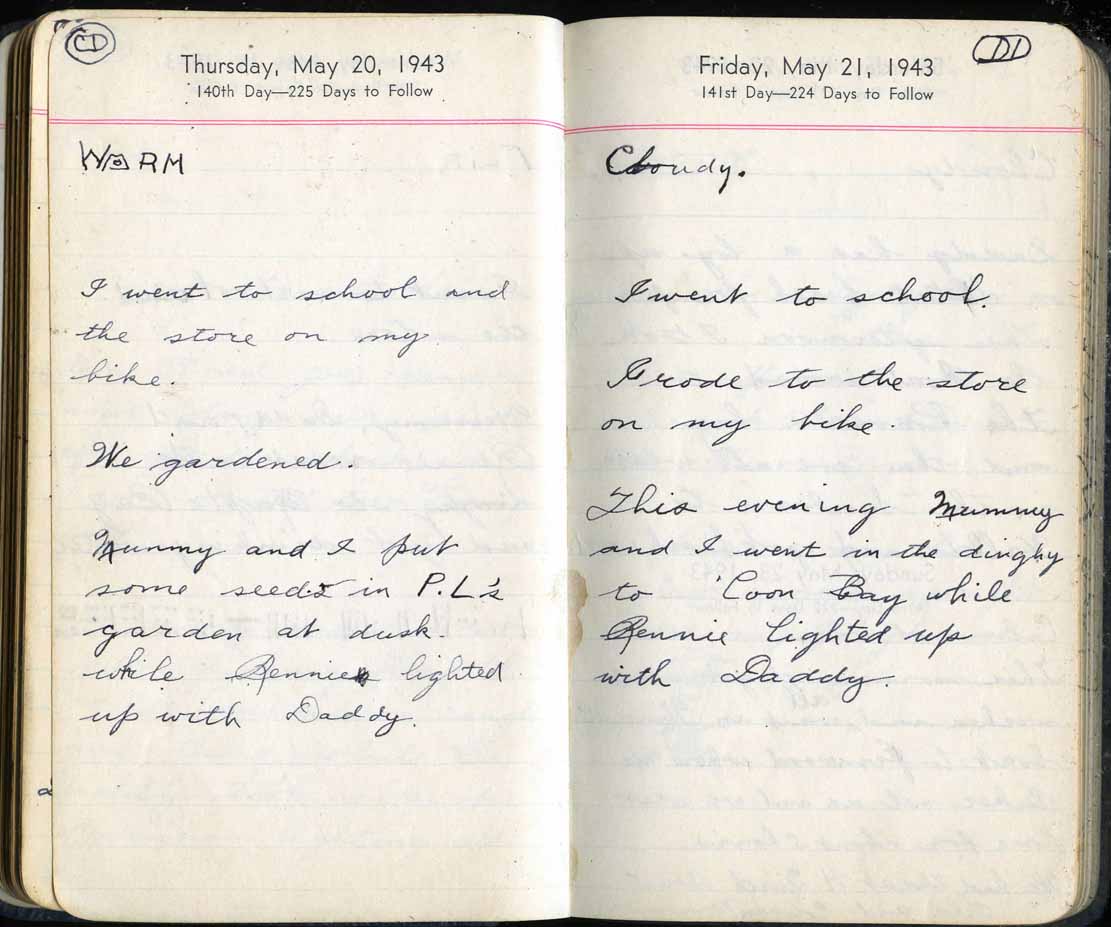 CD
Thursday, May 20, 1943
140th Day—225 Days to Follow
WARM
I went to school and
the store on my
bike.
We gardened.
Mummy and I put
some seeds in P.L.'s
garden at dusk.
while Rennie lighted
up with Daddy.
D1
Friday, May 21, 1943
141st Day—224 Days to Follow
Cloudy.
I went to school.
I rode to the store
on my bike.
This evening Mummy
and I went in the dinghy
to 'Coon Bay while
Rennie lighted up
with Daddy.